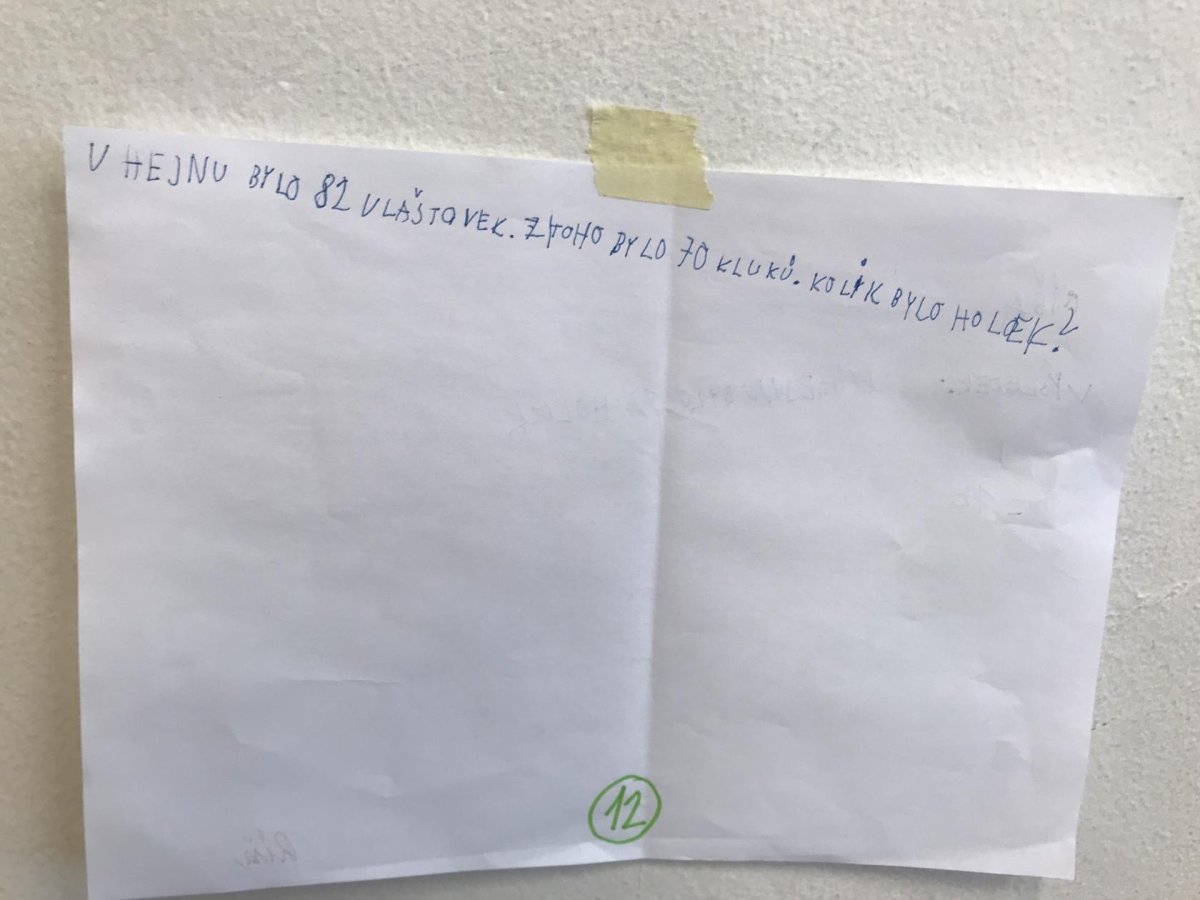 V HEJNU BYLO 82 VLAŠTOVEK. Z TOHO BYLO 70 KLUKŮ. KOLIK BYLO HOLEK?
12